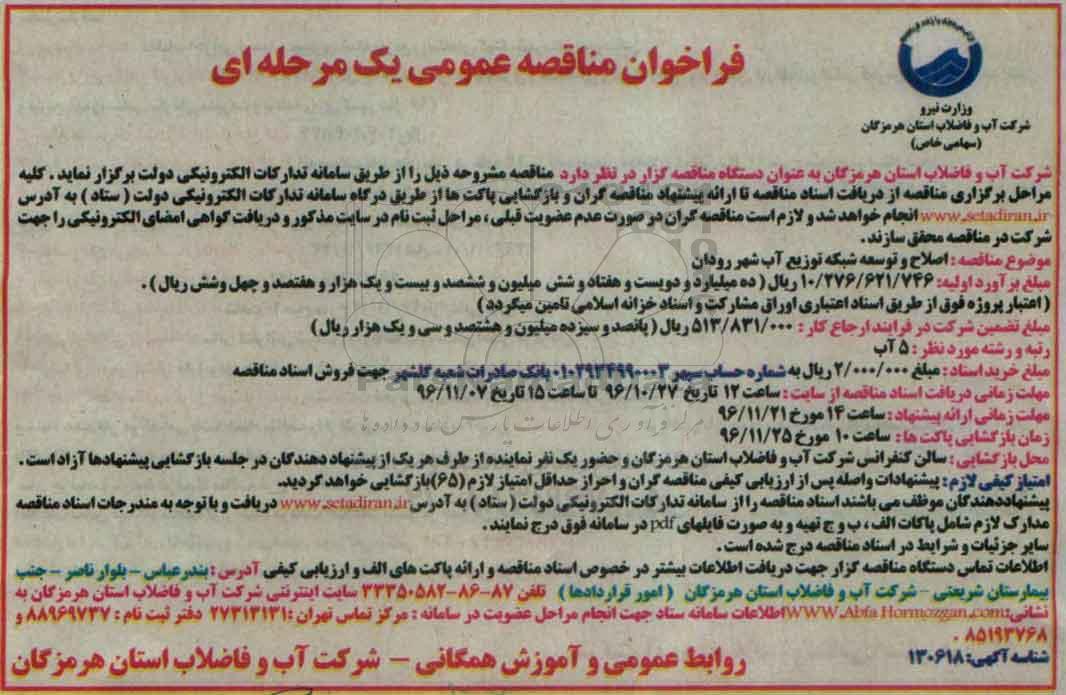 فراخوان مناقصه عمومی یک مرحله ای
وزارت نیرو
شرکت آب و فاضلاب استان هرمزگان
(سهامی خاص)
شرکت آب و فاضلاب استان هرمزگان به عنوان دستگاه مناقصه گزار در نظر دارد مناقصه مشروحه ذیل را از طریق سامانه تدارکات الکترونیکی دولت برگزار نماید . کلیه
مراحل برگزاری مناقصه از دریافت اسناد مناقصه تا ارائه پیشنهاد مناقصه گران و بازگشایی پاکت ها از طریق درگاه سامانه تدارکات الکترونیکی دولت ( ستاد ) به آدرس
www.setadiran.ir انجام خواهد شد و لازم است مناقصه گران در صورت عدم عضویت قبلی ، مراحل ثبت نام در سایت مذکور و دریافت گواهی امضای الکترونیکی را جهت
شرکت در مناقصه محقق سازند .
موضوع مناقصه : اصلاح و توسعه شبکه توزیع آب شهر رودان
مبلغ برآورد اولیه: ۱۰/۲۷۶/۶۲۱/۷۴۶ ریال ( ده میلیارد و دویست و هفتاد و شش میلیون و ششصد و بیست و یک هزار و هفتصد و چهل وشش ریال ) .
( اعتبار پروژه فوق از طریق اسناد اعتباری اوراق مشارکت و اسناد خزانه اسلامی تامین میگردد )
مبلغ تضمین شرکت در فرایند ارجاع کار : ۵۱۳/۸۳۱/۰۰۰ ریال ( پانصد و سیزده میلیون و هشتصد و سی و یک هزار ریال )
رتبه و رشته مورد نظر : ۵ آب
مبلغ خرید اسناد : مبلغ ۲/۰۰۰/۰۰۰ ریال به شماره حساب سپهر ۰۱۰۲۹۳۴۹۹۰۰۰۳ بانک صادرات شعبه گلشهر جهت فروش اسناد مناقصه
مهلت زمانی دریافت اسناد مناقصه از سایت : ساعت ۱۲ تاریخ ۹۶/۱۰/۲۷ تا ساعت ۱۵ تاریخ ۹۶/۱۱/۰۷
مهلت زمانی ارائه پیشنهاد : ساعت ۱۴ مورخ ۹۶/۱۱/۲۱
زمان بازگشایی پاکت ها : ساعت ۱۰ مورخ ۹۶/۱۱/۲۵
محل بازگشایی : سالن کنفرانس شرکت آب و فاضلاب استان هرمزگان و حضور یک نفر نماینده از طرف هر یک از پیشنهاد دهندگان در جلسه بازگشایی پیشنهادها آزاد است .
امتیاز کیفی لازم : پیشنهادات واصله پس از ارزیابی کیفی مناقصه گران و احراز حداقل امتیاز لازم (۶۵) بازگشایی خواهد گردید.
پیشنهاددهندگان موظف می باشند اسناد مناقصه را از سامانه تدارکات الکترونیکی دولت ( ستاد ) به آدرس www.setadiran.ir دریافت و با توجه به مندرجات اسناد مناقصه
مدارک لازم شامل پاکات الف ، ب و ج تهیه و به صورت فایلهای pdf در سامانه فوق درج نمایند .
سایر جزئیات و شرایط در اسناد مناقصه درج شده است .
اطلاعات تماس دستگاه مناقصه گزار جهت دریافت اطلاعات بیشتر در خصوص اسناد مناقصه و ارائه پاکت های الف و ارزیابی کیفی آدرس : بندرعباس – بلوار ناصر – جنب
بیمارستان شریعتی – شرکت آب و فاضلاب استان هرمزگان ( امور قراردادها ) تلفن ۸۷-۸۶-۳۳۳۵۰۵۸۲ سایت اینترنتی شرکت آب و فاضلاب استان هرمزگان به
نشانی: WWW.Abfa Hormozgan.com اطلاعات سامانه ستاد جهت انجام مراحل عضویت در سامانه : مرکز تماس تهران : ۲۷۳۱۳۱۳۱ دفتر ثبت نام : ۸۸۹۶۹۷۳۷ و
۸۵۱۹۳۷۶۸ .
شناسه آگهی: ۱۳۰۶۱۸
روابط عمومی و آموزش همگانی – شرکت آب و فاضلاب استان هرمزگان